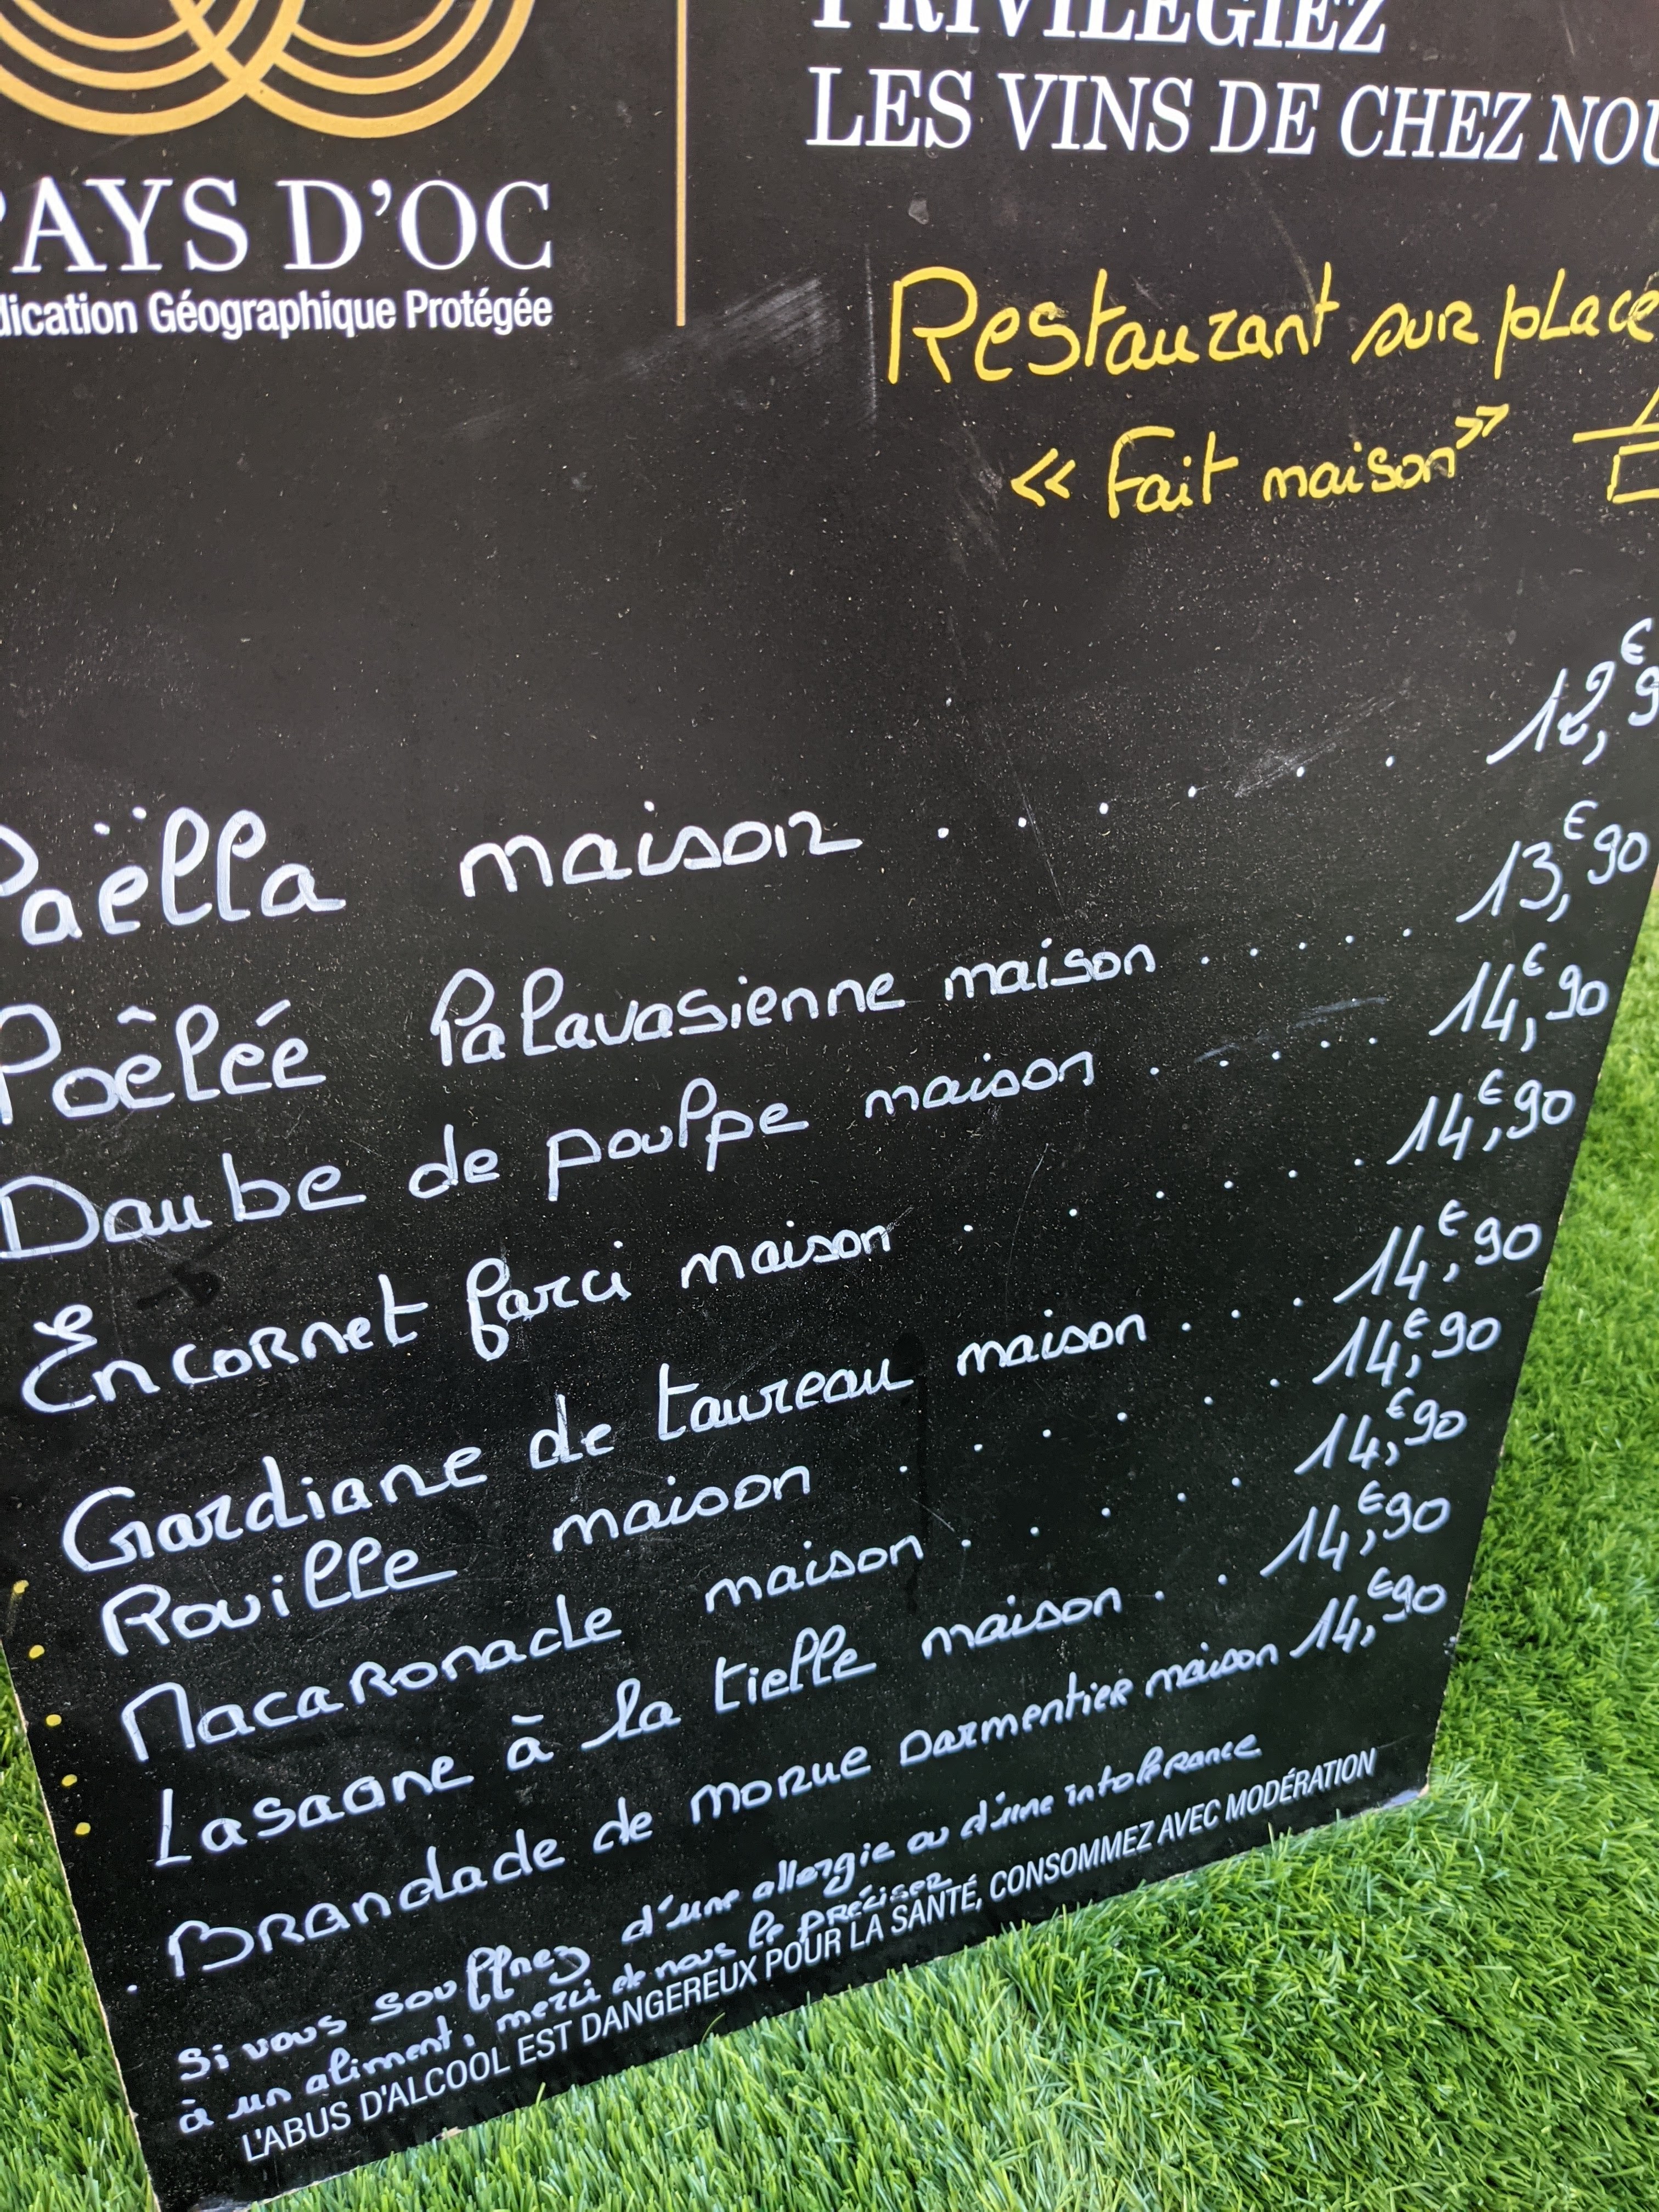 PRIVILÉGIEZ
LES VINS DE CHEZ NOU
PAYS D'OC
dication Géographique Protégée
Restaurant sur place
« Fait maison »
Paëlla maison . . . . . . 12,€9
Poêlée Palavasienne maison . . . . . . 13,€90
Daube de poulpe maison . . . . . . 14,€90
Encornet farci maison . . . . . 14,€90
Gardiane de taureau maison . . . 14,€90
Rouille maison . . . . . . 14,€90
Macaronade maison . . . . . 14,€90
Lasagne à la tielle maison . . 14,€90
Brandade de morue parmentier maison 14,€90
Si vous souffrez d'une allergie ou d'une intolérance
à un aliment, merci de nous le préciser
L'ABUS D'ALCOOL EST DANGEREUX POUR LA SANTÉ, CONSOMMEZ AVEC MODÉRATION